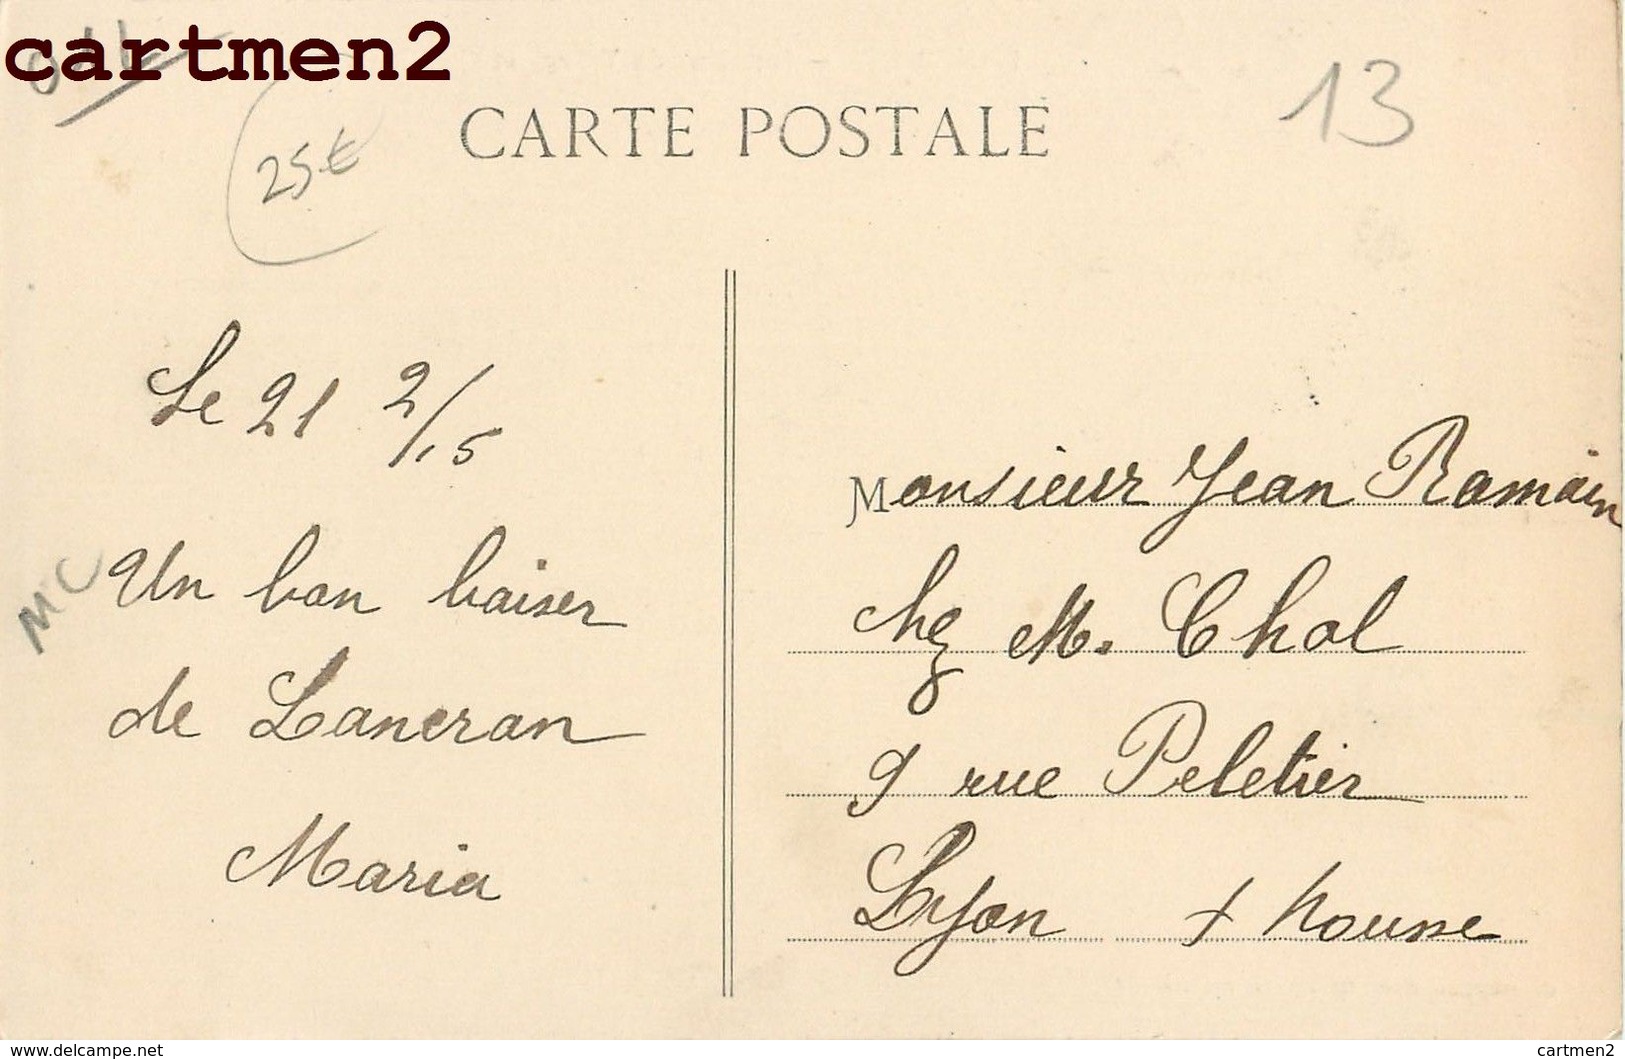 cartmen2
13
CARTE POSTALE
25€
Le 21 2/15
Un bon baiser
de Lancran
Maria
MC
Monsieur Jean Romain
chez M. Chol
9 rue Peletier
Lyon + housse
www.delcampe.net
cartmen2